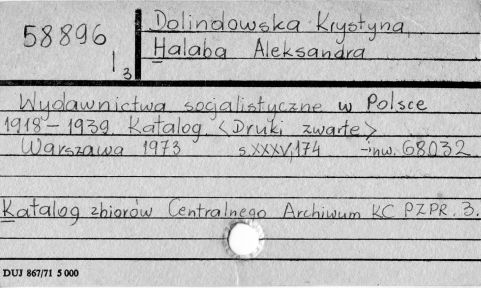 58896
I 3
Dolindowska Krystyna,
Halaba Aleksandra
Wydawnictwa socjalistyczne w Polsce
1918-1939. Katalog <Druki zwarte>
Warszawa 1973 s.XXXV,174 inw. 68032
Katalog zbiorów Centralnego Archiwum KC PZPR. 3.
DUJ 867/71 5 000